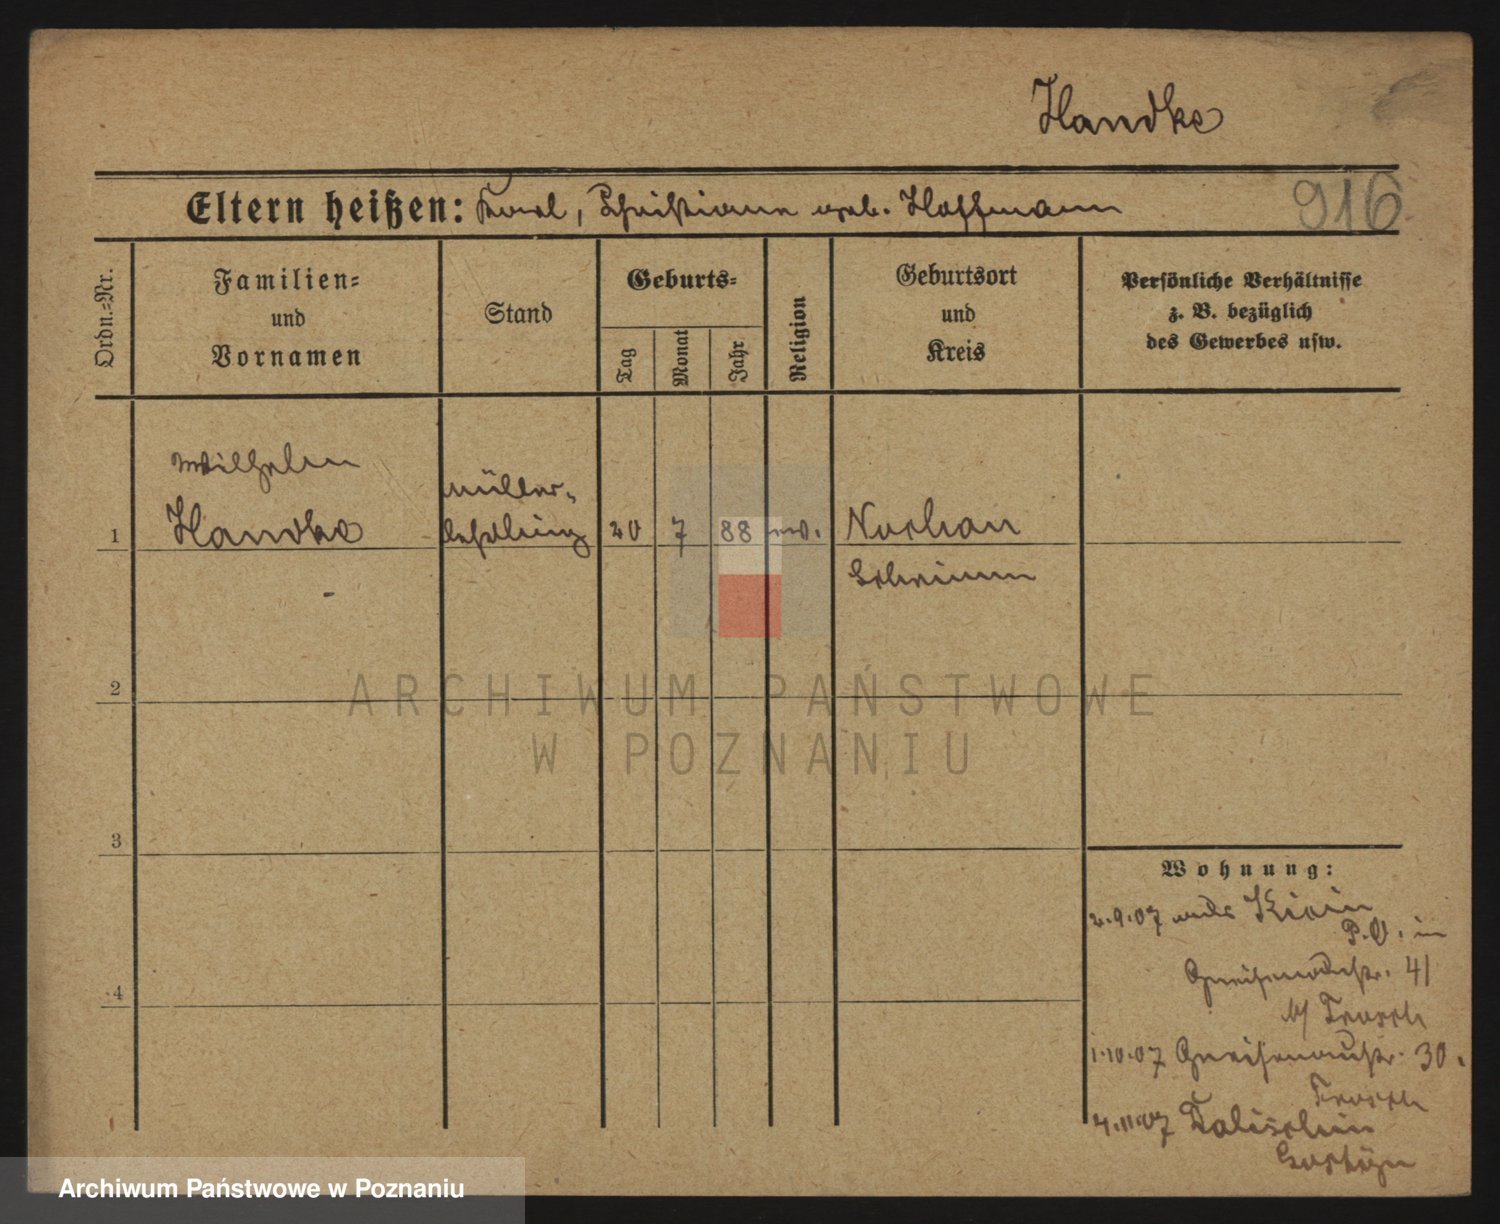 Handke
Eltern heißen: Karl, Christiane geb. Hoffmann
916
Ordn.-Nr.
Familien-
und
Vornamen
Stand
Geburts-
Tag
Monat
Jahr
Religion
Geburtsort
und
Kreis
Persönliche Verhältnisse
z. B. bezüglich
des Gewerbes usw.
Wilhelm
Handke
Müller-
lehrling
20
7
88
ev.
Nochau
Schrimm
1
2
3
4
Wohnung:
2.9.07 aus
P.O. in
Gneisenaustr. 41
b/
1.10.07 Gneisenaustr. 30.
4.11.07 Talischin
Gostyn
ARCHIWUM PAŃSTWOWE
W POZNANIU
Archiwum Państwowe w Poznaniu